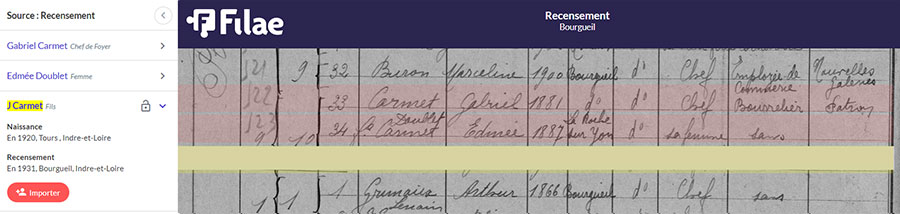 Source : Recensement
Gabriel Carmet Chef de Foyer
Edmée Doublet Femme
J Carmet Fils
Naissance
En 1920, Tours , Indre-et-Loire
Recensement
En 1931, Bourgueil, Indre-et-Loire
Importer
Filae
Recensement
Bourgueil
121 9 32 Buron Marceline 1900 Bourgueil d° Chef Employée de Commerce Nouvelles Galeries
122 33 Carmet Gabriel 1881 d° d° Chef Bourrelier Patron
123 Doublet La Roche
9 10 34 fe Carmet Edmée 1887 sur Yon d° sa femme sans
1 1 1 Arthur 1866 Bourgueil d° Chef sans